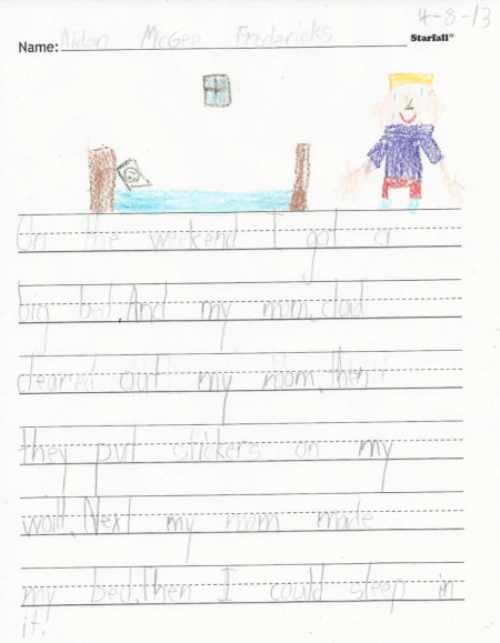 4-8-13
Name: Aidan McGee Fredericks Starfall®
On the weekend I got a
big bed. And my mom, dad
cleared out my room, then
they put stickers on my
wall. Next my mom made
my bed. Then I could sleep in
it.